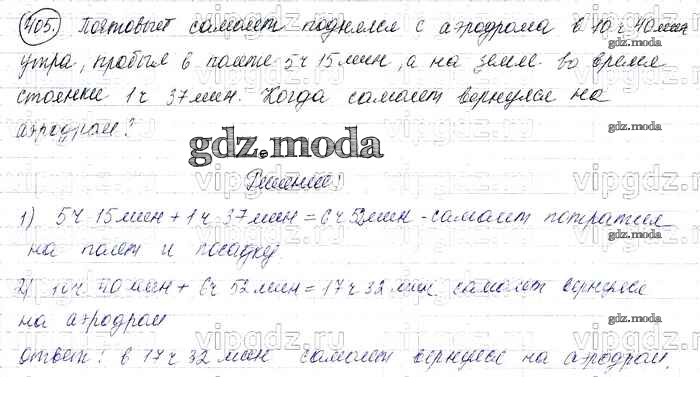 405. Почтовый самолет поднялся с аэродрома в 10 ч 40 мин
утра, пробыл в полете 5 ч 15 мин, а на земле во время
стоянки 1 ч 37 мин. Когда самолет вернулся на
аэродром?
gdz.moda
Решение:
1) 5 ч 15 мин + 1 ч 37 мин = 6 ч 52 мин - самолет потратил
на полет и посадку.
2) 10 ч 40 мин + 6 ч 52 мин = 17 ч 32 мин самолет вернулся
на аэродром
ответ: в 17 ч 32 мин самолет вернулся на аэродром.